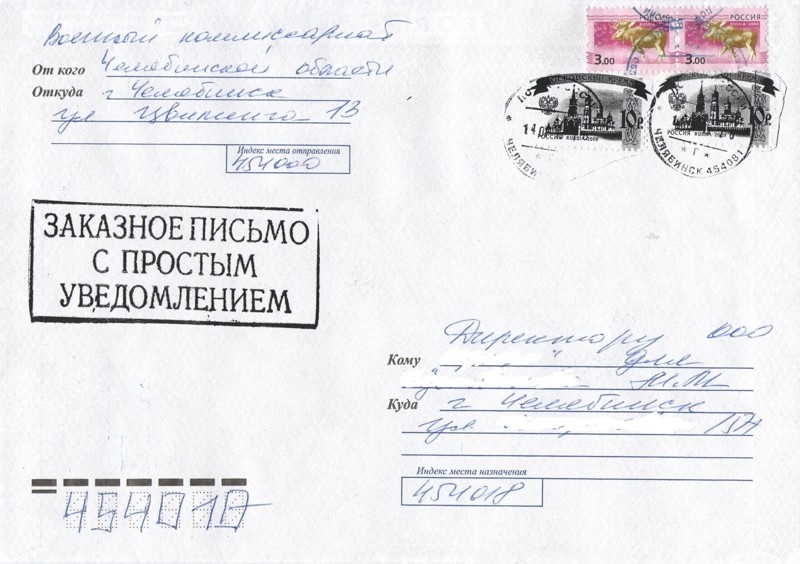 Военный комиссариат
От кого Челябинской области
Откуда г Челябинск
ул Цвиллинга 13
Индекс места отправления
454000
РОССИЯ
3.00
РОССИЯ
3.00
МОСКОВСКИЙ КРЕМЛЬ
10р
РОССИЯ RUSSIA 2009
14
ЧЕЛЯБИ
10р
РОССИЯ RUSSIA
ЧЕЛЯБИНСК 454081
Г
ЗАКАЗНОЕ ПИСЬМО
С ПРОСТЫМ
УВЕДОМЛЕНИЕМ
Директору ООО
Кому " " Для
Н.М
Куда г Челябинск
ул
Индекс места назначения
454018
454017